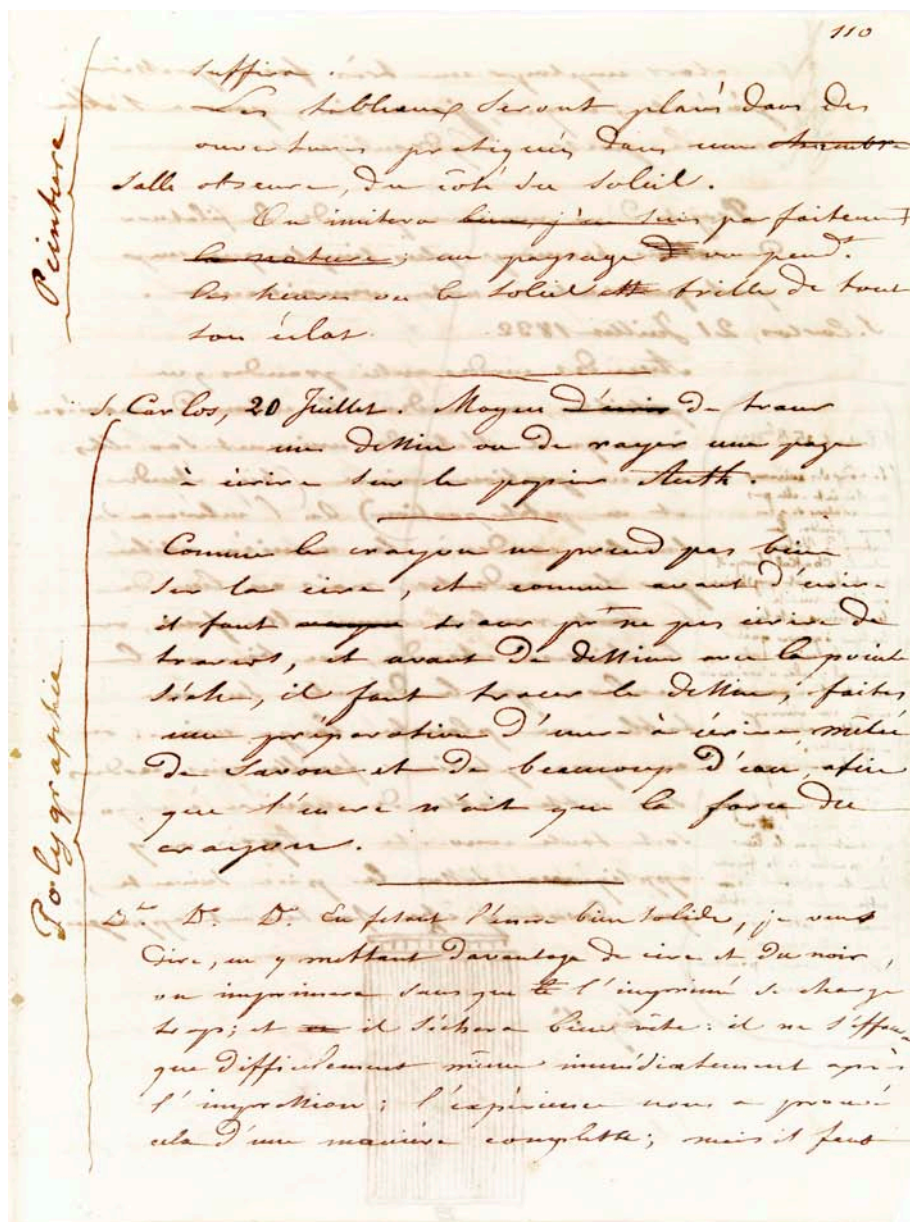 110
Peinture
suffira.
Les tableaux seront placés dans des
ouvertures pratiquées dans une chambre
salle obscure, du côté du soleil.
On imitera bien, j'en suis parfaitement
la nature; un paysage vu pend.t
les heures ou le soleil brille de tout
son éclat.
Polygraphie
S. Carlos, 20 Juillet. Moyen d'ecrire de tracer
une dessin ou de rayer une page
à écrire sur le papier
Comme le crayon ne prend pas bien
sur la cire, et comme avant d'écrire
il faut tracer pr ne pas écrire de
travers, et avant de dessiner avec la pointe
sèche, il faut tracer le dessin; faites
une préparation d'encre à écrire mêlée
de savon et de beaucoup d'eau, afin
que l'encre n'ait que la force du
crayon.
D.o D.o D.o En fesant l'encre bien solide, je veux
dire, en y mettant davantage de cire et du noir,
on imprimera sans que l'imprimé se charge
trop; et il séchera bien vite: il ne s'efface
que difficilement même immédiatement après
l'impression; l'expérience nous a prouvé
cela d'une manière complette; mais il faut